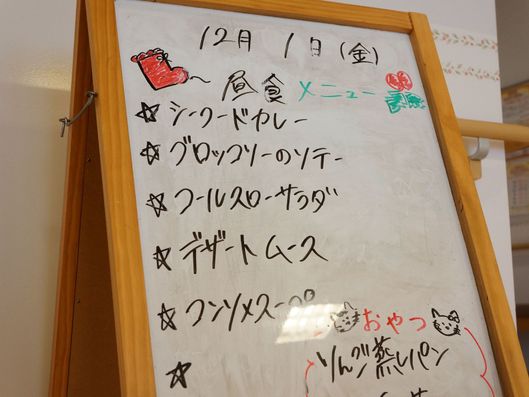 12月 1日(金)
昼食メニュー
☆シーフードカレー
☆ブロッコリーのソテー
☆コールスローサラダ
☆デザートムース
☆コンソメスープ
☆
おやつ
りんご蒸しパン